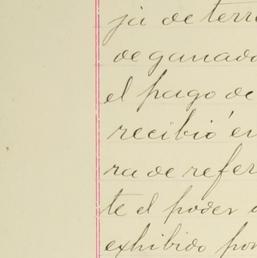 ja de terre
de ganado
el pago de
recibió en
ra de refer
te el poder
exhibido por